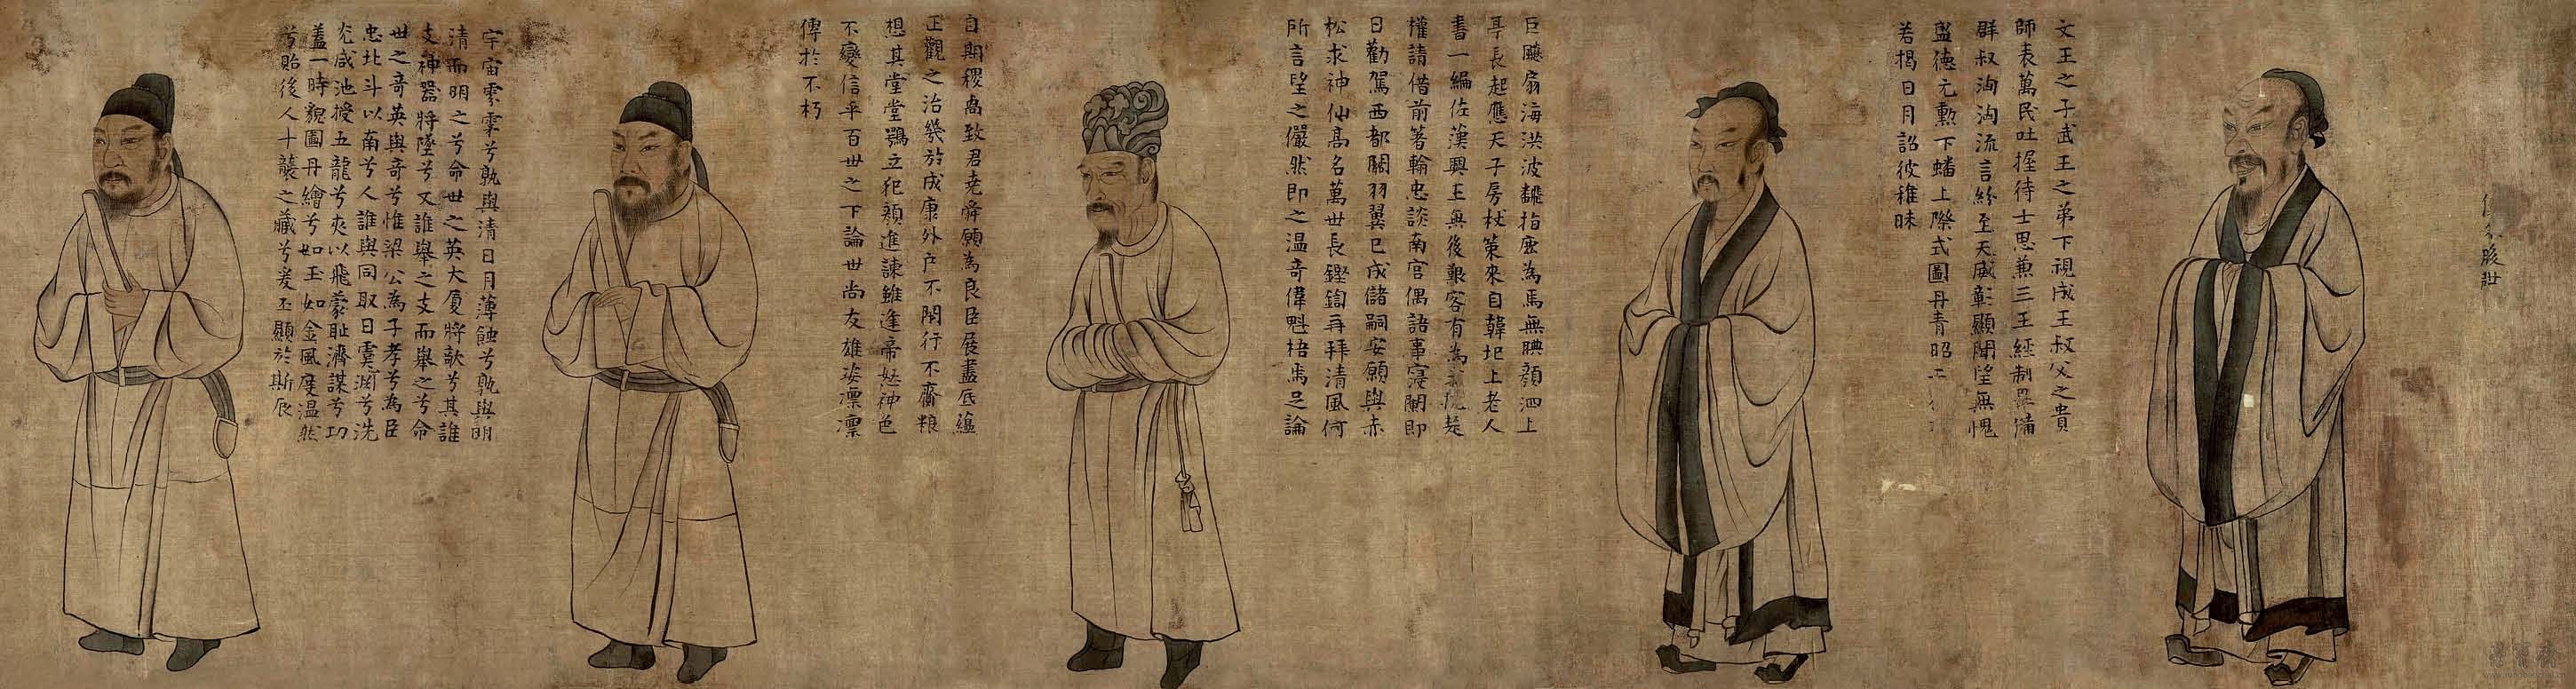 文王之子武王之弟下視成王叔父之貴
師表萬民吐握待士思兼三王經制罟備
群叔洶洶流言紛至天威彰顯聞望無愧
盛德元勳下蟠上際式圖丹青昭
若揭日月詔彼稚昧
巨颷扇海洪波飜指鹿為馬無腆顏泗上
亭長起應天子房杖策來自韓圯上老人
書一編佐漢興王無後艱客有為
權請借前箸輸忠談南宮偶語事寖闌即
日勸駕西都關羽翼已成儲嗣安願與赤
松求神仙高名萬世長鏗鍧再拜清風何
所言望之儼然即之溫奇偉魁梧焉足論
自期稷卨致君堯舜願為良臣展盡底蘊
正觀之治幾於成康外户不閉行不齎粮
想其堂堂鶚立犯顏進諫雖逢帝怒神色
不變信乎百世之下論世尚友雄姿凛凛
傳於不朽
宇宙雰雺兮孰與清日月薄蝕兮孰與明
清而明之兮命世之英大厦將欹兮其誰
支神器將墜兮又誰舉之支而舉之兮命
世之奇英與奇兮惟梁公為子孝兮為臣
忠北斗以南兮人誰與同取日虞淵兮洗
光咸池授五龍兮夾以飛蒙耻濟謀兮功
蓋一時貌圖丹繪兮如玉如金風度温然
兮貽後人十襲之藏兮爰丕顯於斯辰